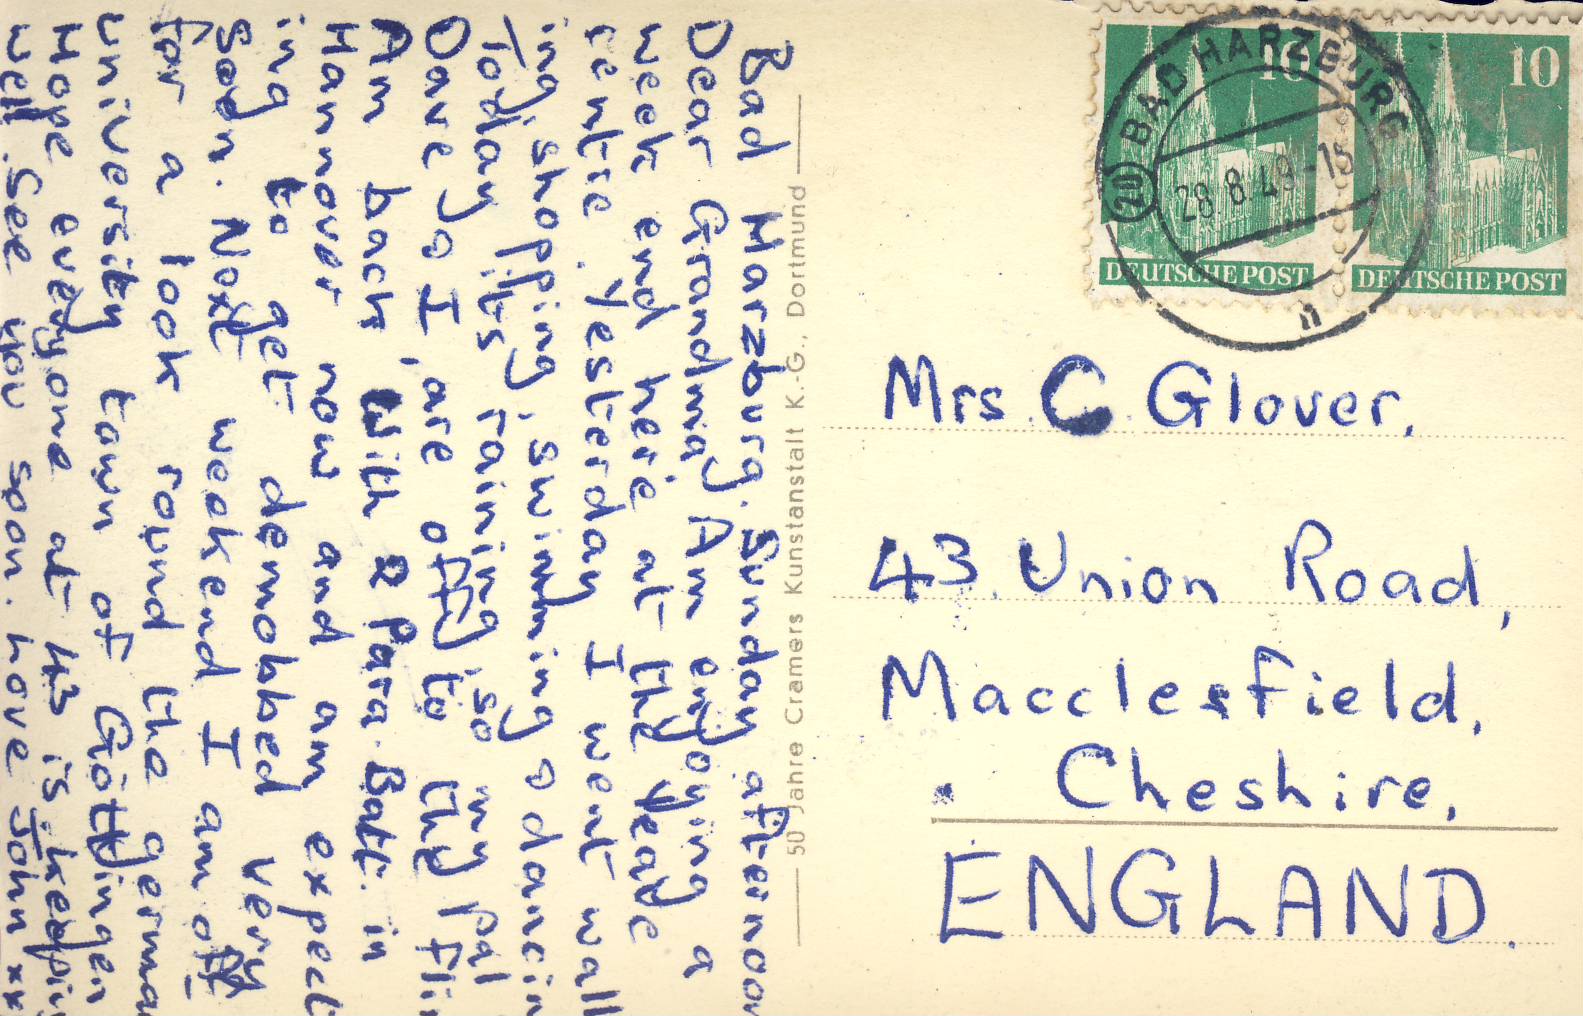 Bad Harzburg. Sunday afternoon
Dear Grandma, Am enjoying a
week end here at the leave
centre. Yesterday I went walk
ing, shopping, swimming & dancin
Today its raining, so my pal
Dave & I, are off to the flic
Am back with 2 Para. Batt. in
Hannover now and am expect
ing to get demobbed very
soon. Next weekend I am off
for a look round the germa
university town of Göttingen
Hope everyone at 43 is keepin
well. See you soon. love John xx
50 Jahre Cramers Kunstanstalt K.-G., Dortmund
10
10
DEUTSCHE POST
DEUTSCHE POST
(20) BAD HARZBURG
28. 8. 49 -18
n
Mrs C Glover,
43 Union Road,
Macclesfield,
Cheshire,
ENGLAND.